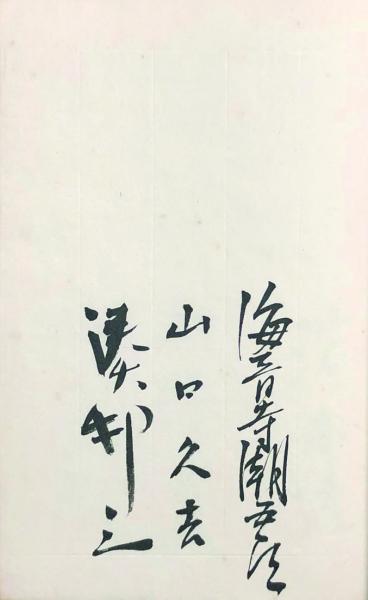 海音寺潮五郎
山口久吉
湊邦三